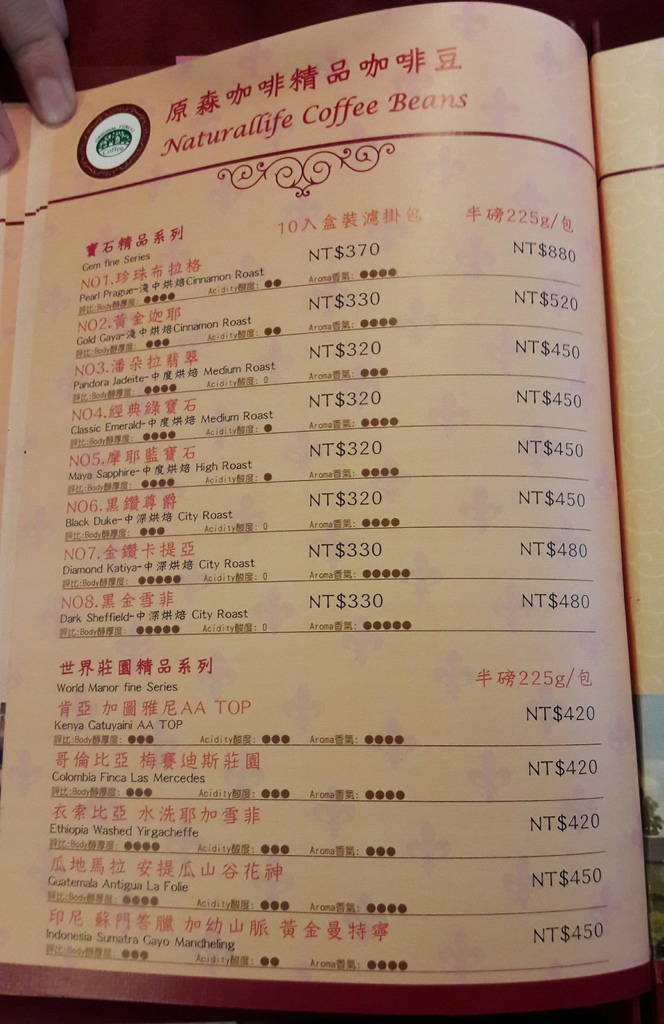 原森咖啡精品咖啡豆
Naturallife Coffee Beans
Coffee
寶石精品系列 10入盒裝濾掛包 半磅225g/包
Gem fine Series
NO1.珍珠布拉格 NT$370 NT$880
Pearl Prague-淺中烘焙Cinnamon Roast
評比:Body醇厚度: ●●●● Acidity酸度: ●● Aroma香氣: ●●●●
NO2.黃金迦耶 NT$330 NT$520
Gold Gaya-淺中烘焙Cinnamon Roast
評比:Body醇厚度: ●●● Acidity酸度: ●● Aroma香氣: ●●●●
NO3.潘朵拉翡翠 NT$320 NT$450
Pandora Jadeite-中度烘焙 Medium Roast
評比:Body醇厚度: ●●●● Acidity酸度: 0 Aroma香氣: ●●●
NO4.經典綠寶石 NT$320 NT$450
Classic Emerald-中度烘焙 Medium Roast
評比:Body醇厚度: ●●●● Acidity酸度: ● Aroma香氣: ●●●●
NO5.摩耶藍寶石 NT$320 NT$450
Maya Sapphire-中度烘焙 High Roast
評比:Body醇厚度: ●●●● Acidity酸度: ● Aroma香氣: ●●●●
NO6.黑鑽尊爵 NT$320 NT$450
Black Duke-中深烘焙 City Roast
評比:Body醇厚度: ●●● Acidity酸度: 0 Aroma香氣: ●●●●
NO7.金鑽卡提亞 NT$330 NT$480
Diamond Katiya-中深烘焙 City Roast
評比:Body醇厚度: ●●●●● Acidity酸度: 0 Aroma香氣: ●●●●●
NO8.黑金雪菲 NT$330 NT$480
Dark Sheffield-中深烘焙 City Roast
評比:Body醇厚度: ●●●●● Acidity酸度: 0 Aroma香氣: ●●●●●
世界莊園精品系列 半磅225g/包
World Manor fine Series
肯亞 加圖雅尼AA TOP NT$420
Kenya Gatuyaini AA TOP
評比:Body醇厚度: ●●● Acidity酸度: ●●● Aroma香氣: ●●●●
哥倫比亞 梅賽迪斯莊園 NT$420
Colombia Finca Las Mercedes
評比:Body醇厚度: ●●● Acidity酸度: ●●● Aroma香氣: ●●●●
衣索比亞 水洗耶加雪菲 NT$420
Ethiopia Washed Yirgacheffe
評比:Body醇厚度: ●●●● Acidity酸度: ●●● Aroma香氣: ●●●
瓜地馬拉 安提瓜山谷花神 NT$450
Guatemala Antigua La Folie
評比:Body醇厚度: ●●●● Acidity酸度: ●●● Aroma香氣: ●●●●
印尼 蘇門答臘 加幼山脈 黃金曼特寧 NT$450
Indonesia Sumatra Gayo Mandheling
評比:Body醇厚度: ●●● Acidity酸度: ●● Aroma香氣: ●●●●